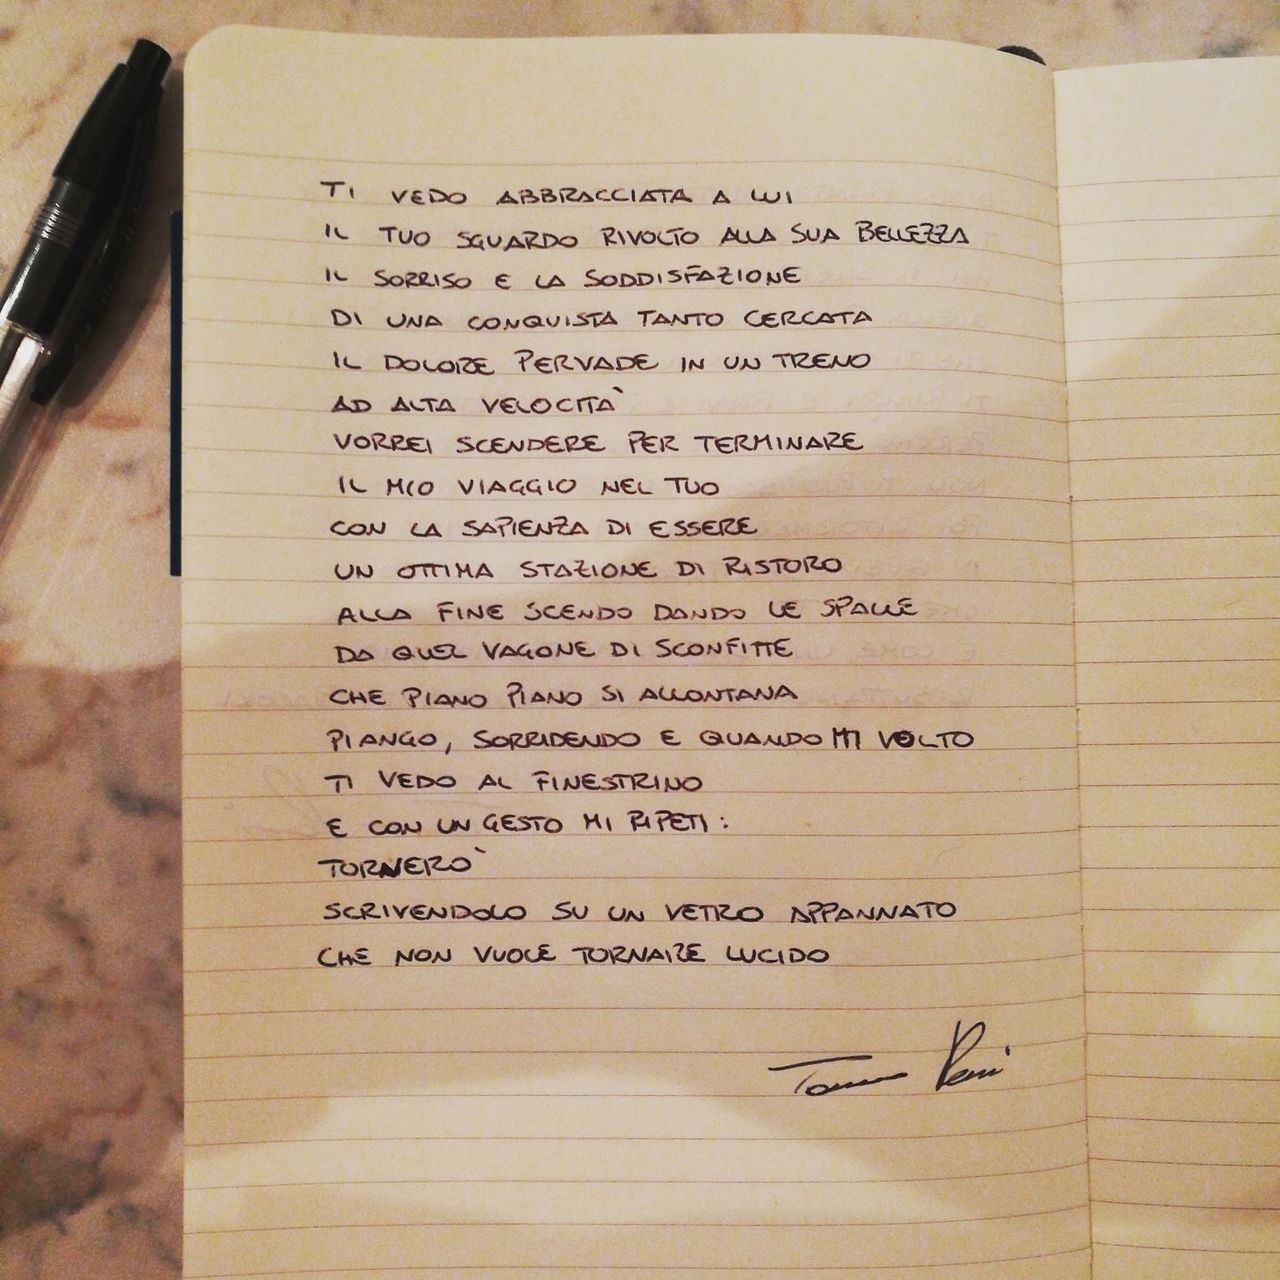 TI VEDO ABBRACCIATA A LUI
IL TUO SGUARDO RIVOLTO ALLA SUA BELLEZZA
IL SORRISO E LA SODDISFAZIONE
DI UNA CONQUISTA TANTO CERCATA
IL DOLORE PERVADE IN UN TRENO
AD ALTA VELOCITÀ
VORREI SCENDERE PER TERMINARE
IL MIO VIAGGIO NEL TUO
CON LA SAPIENZA DI ESSERE
UN OTTIMA STAZIONE DI RISTORO
ALLA FINE SCENDO DANDO LE SPALLE
DA QUEL VAGONE DI SCONFITTE
CHE PIANO PIANO SI ALLONTANA
PIANGO, SORRIDENDO E QUANDO MI VOLTO
TI VEDO AL FINESTRINO
E CON UN GESTO MI RIPETI:
TORNERÒ
SCRIVENDOLO SU UN VETRO APPANNATO
CHE NON VUOLE TORNARE LUCIDO